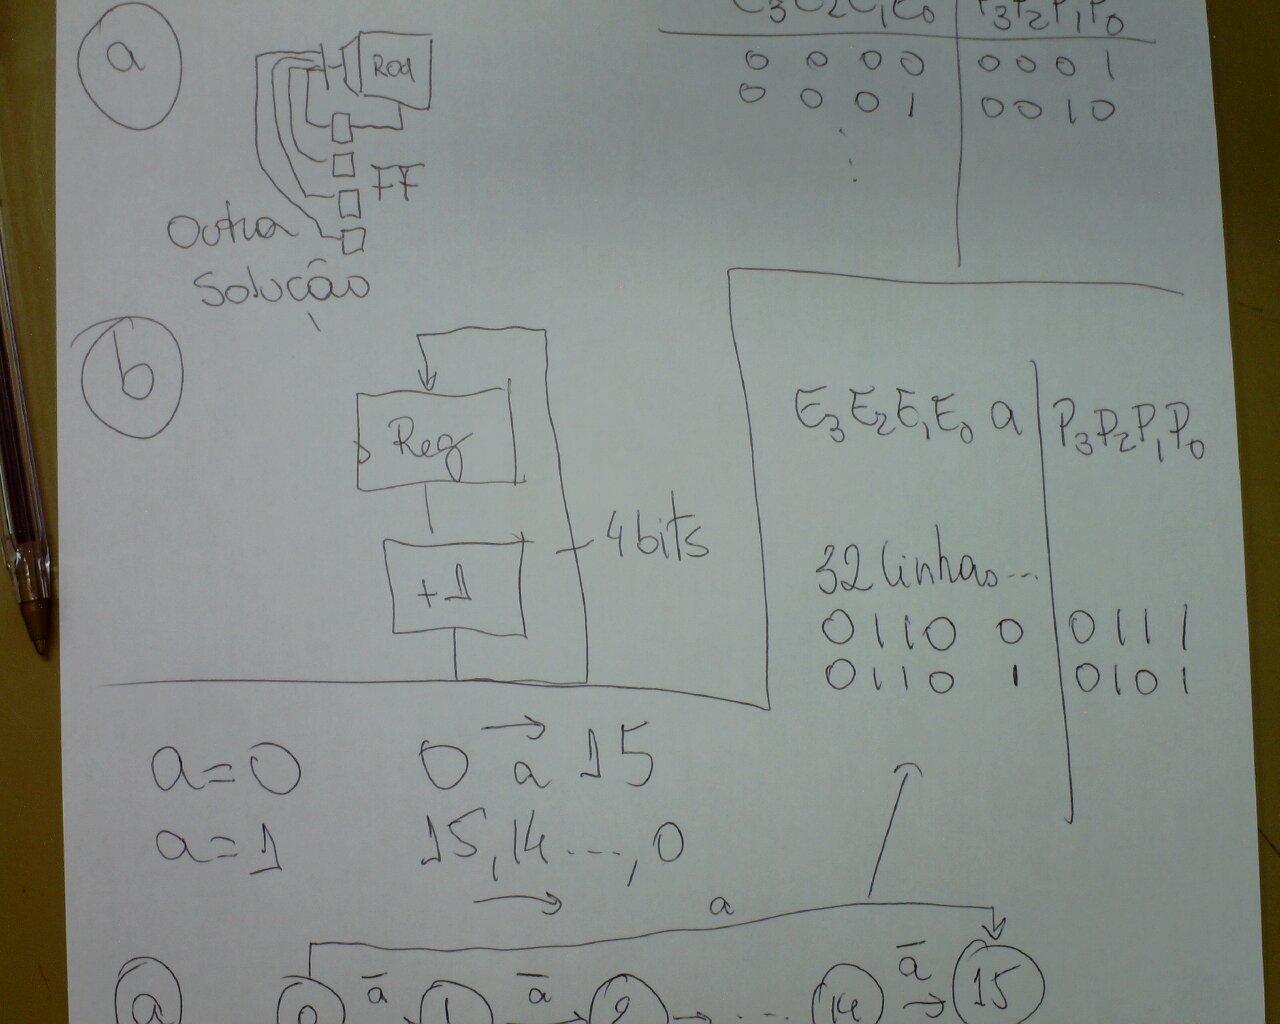 a
Rod
FF
Outra
Solução
E3E2E1E0 P3P2P1P0
0 0 0 0 0 0 0 1
0 0 0 1 0 0 1 0
b
Reg
+1
4 bits
E3E2E1E0 a P3P2P1P0
32 linhas...
0110 0 0111
0110 1 0101
a=0 0 a 15
a=1 15,14...,0
a
a 0 ā 1 ā 2 .... 14 ā 15